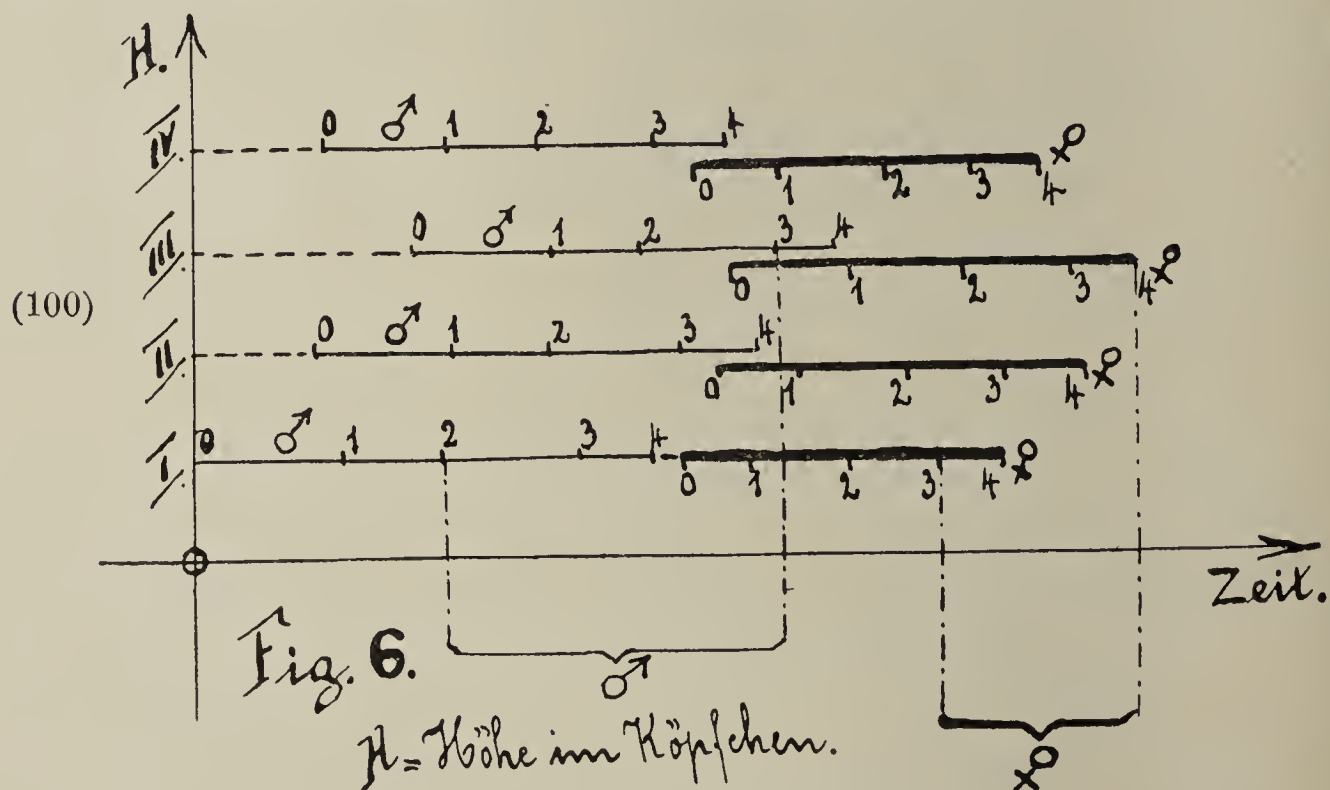 H.
IV
0 ♂ 1 2 3 4
0 1 2 3 4 ♀
III
0 ♂ 1 2 3 4
0 1 2 3 4 ♀
(100)
II
0 ♂ 1 2 3 4
0 1 2 3 4 ♀
I
0 ♂ 1 2 3 4
0 1 2 3 4 ♀
Zeit.
Fig. 6.
♂
H = Höhe im Köpfchen.
♀